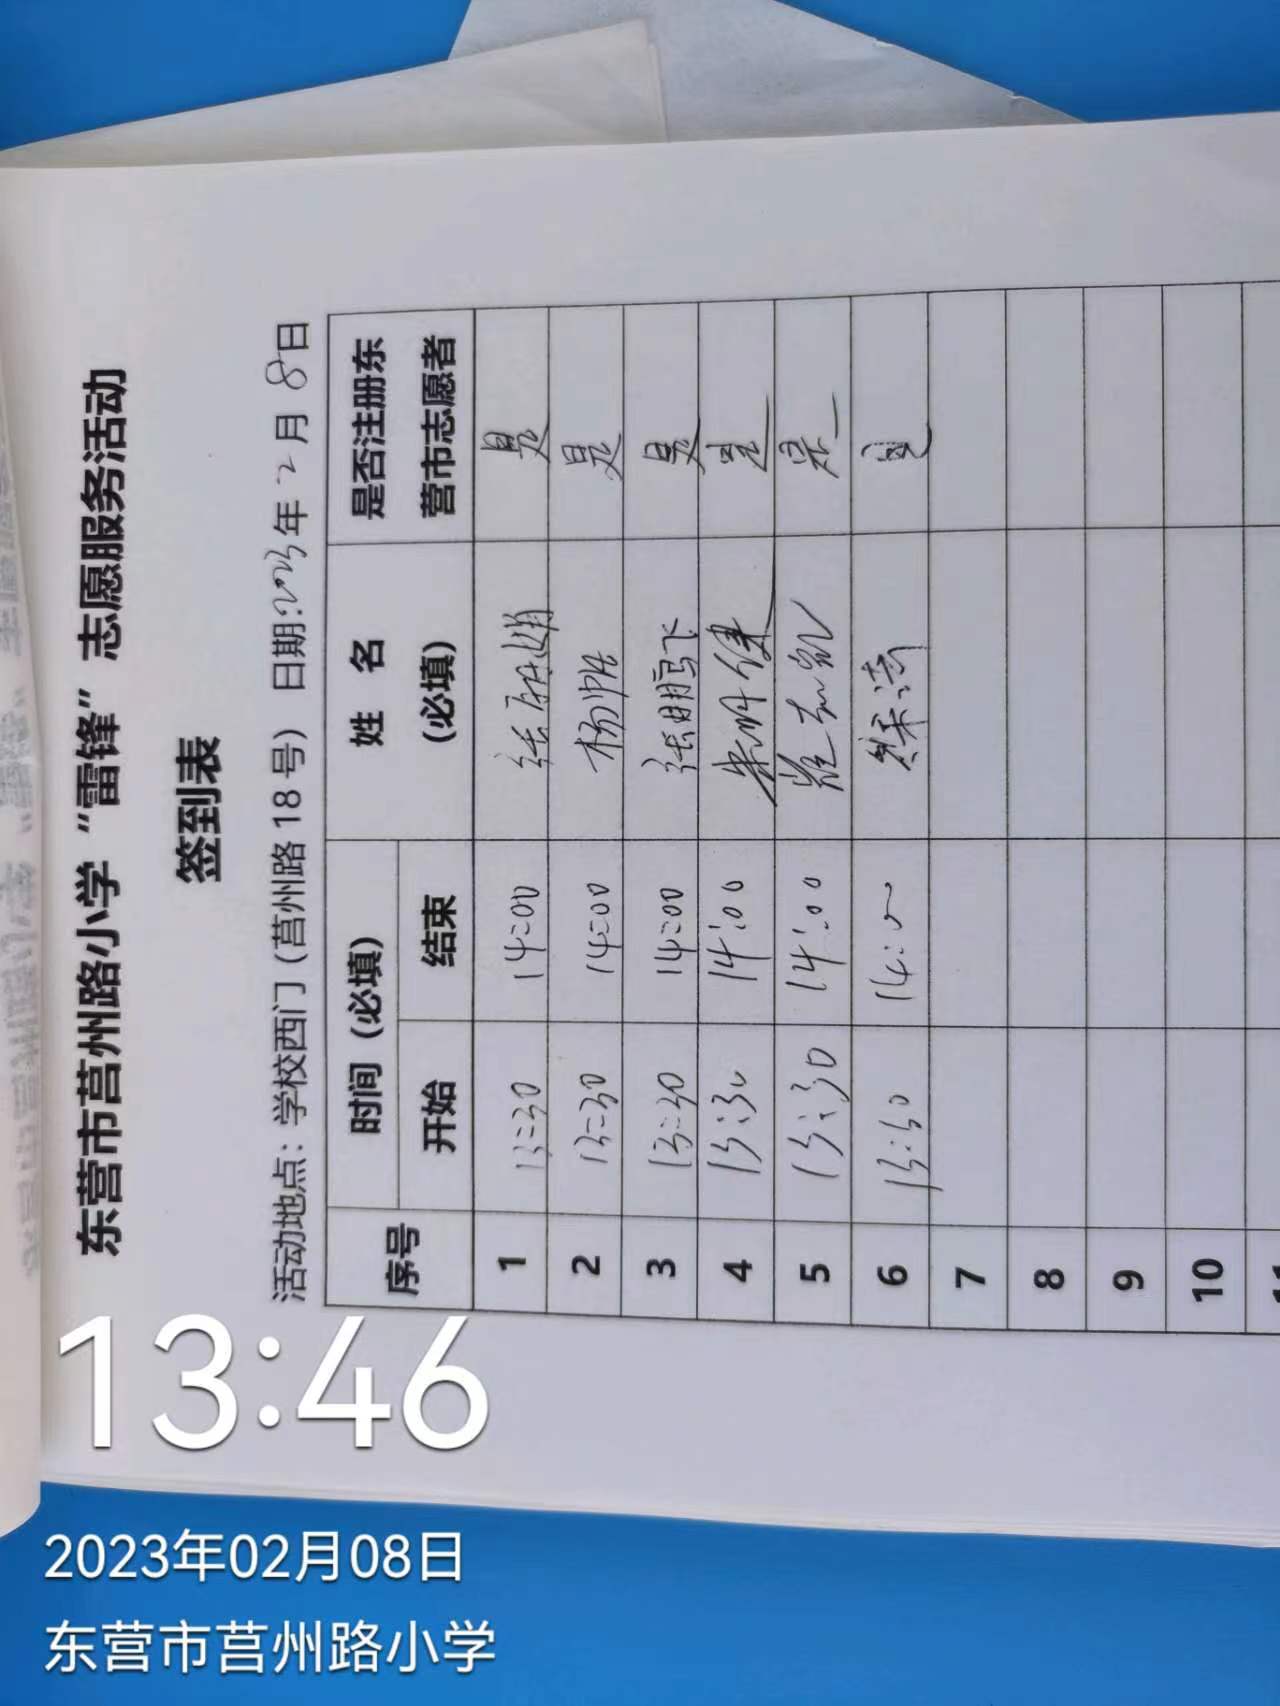 东营市莒州路小学“雷锋”志愿服务活动
签到表
活动地点：学校西门（莒州路18号） 日期:2023年2月8日
序号 时间（必填） 姓 名（必填） 是否注册东营市志愿者
开始 结束
1 13:30 14:00 是
2 13:30 14:00 杨帅 是
3 13:30 14:00 张鹏飞 是
4 13:30 14:00 是
5 13:30 14:00 是
6 13:30 14:00 是
7
8
9
10
11
13:46
2023年02月08日
东营市莒州路小学